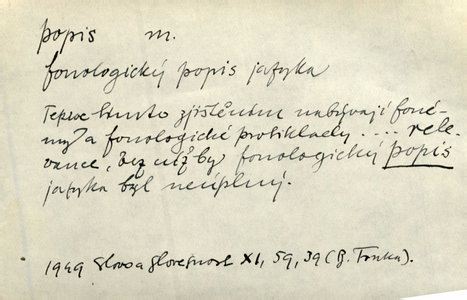 popis m.
fonologický popis jazyka
Teprve tímto zjištěním nabývají foné-
my a fonologické protiklady .... rele-
vance, bez níž by fonologický popis
jazyka byl neúplný.
1949 Slovo a Slovesnost XI, 59, 39 (B. Trnka).